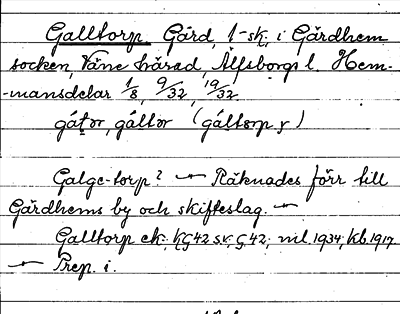 Galltorp Gård, 1-sk, i Gärdhem
socken, Väne härad, Älfsborgs l. Hem-
-mansdelar 1/8, 9/32, 19/32
gáțor, gáltor (gáltorp. r)
Galge-torp? — Räknades förr till
Gärdhems by och skifteslag. —
Galltorp ek. KG42 sv. G42, ml. 1934, Kb. 1917
— Prep. i.